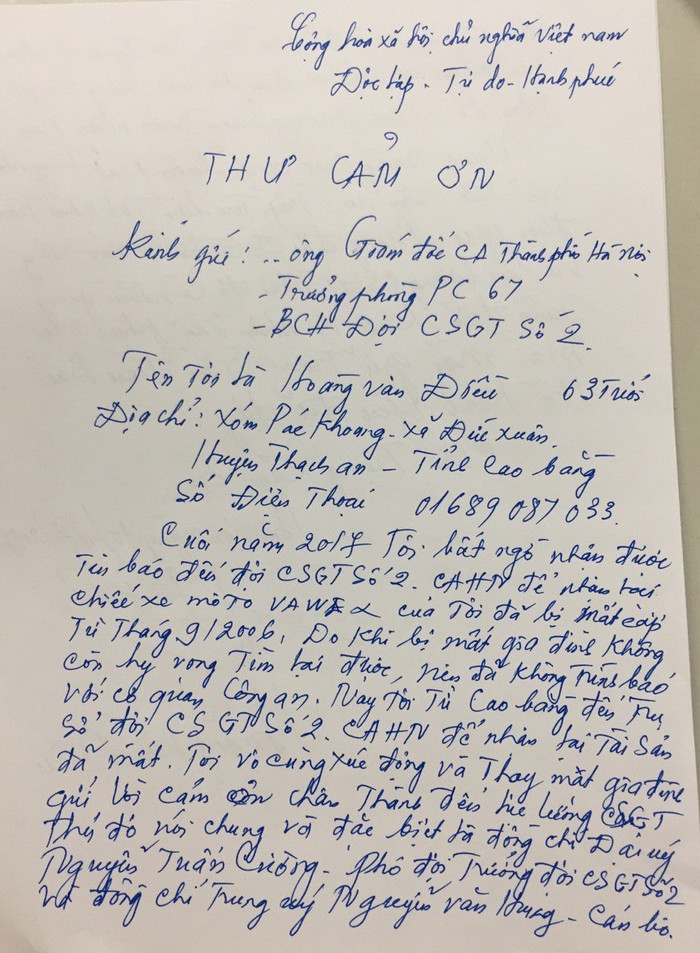 Cộng hòa xã hội chủ nghĩa Việt nam
Độc lập - Tự do - Hạnh phúc
THƯ CẢM ƠN
Kính gửi: .. ông Giám đốc CA Thành phố Hà nội
- Trưởng phòng PC 67
- BCH Đội CSGT Số 2.
Tên Tôi là Hoàng văn Điều 63 Tuổi
Địa chỉ: Xóm Pác Khoang - xã Đức xuân.
Huyện Thạch an - Tỉnh Cao bằng
Số Điện Thoại 01689 087 033.
Cuối năm 2017 Tôi bất ngờ nhận được
Tin báo đến đội CSGT Số 2. CAHN để nhận lại
chiếc xe môtô VAWE α của Tôi đã bị mất cắp
Từ Tháng 9/2006, Do khi bị mất gia đình không
còn hy vọng Tìm lại được, nên đã không trình báo
với cơ quan Công an. Nay Tôi Từ Cao bằng đến Trụ
Sở đội CSGT Số 2. CAHN để nhận lại Tài Sản
đã mất. Tôi vô cùng xúc động và Thay mặt gia đình
gửi lời cảm ơn chân Thành đến lực lượng CSGT
Thủ đô nói chung và đặc biệt là đồng chí Đại uý
Nguyễn Tuấn Cường - Phó đội Trưởng đội CSGT Số 2
và đồng chí Trung uý Nguyễn văn Hưng - Cán bộ.